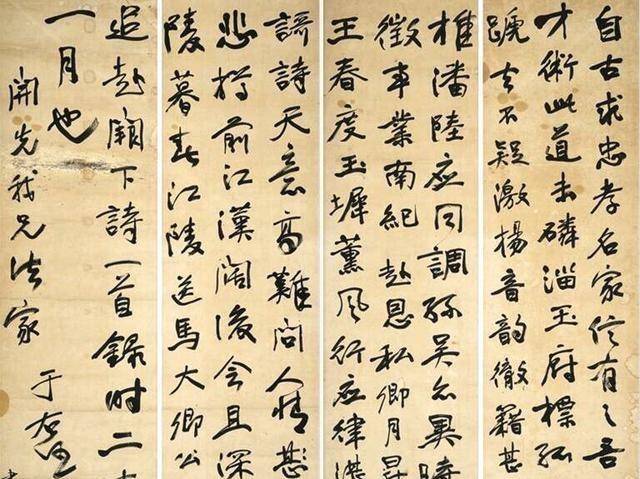 自古求忠孝名家信有之吾
才術此道未磷淄玉府標孤
蹏去不疑激楊音韵徹籍甚
推潘陸應同調孫吳亦異時
徵事業南紀赴恩私卿月昇
王春度玉墀薰風行應律湛
謌詩天意高難問人情甚
悲樽前江漢闊後會且深
陵暮春江陵送馬大卿公
追赴闕下詩一首錄時二
一月也
開先我兄法家 于右任